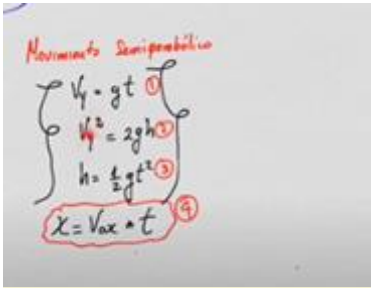 Movimiento Semiparabólico
Vy = gt ①
Vy² = 2gh ②
h = ½gt² ③
X = Vox * t ④